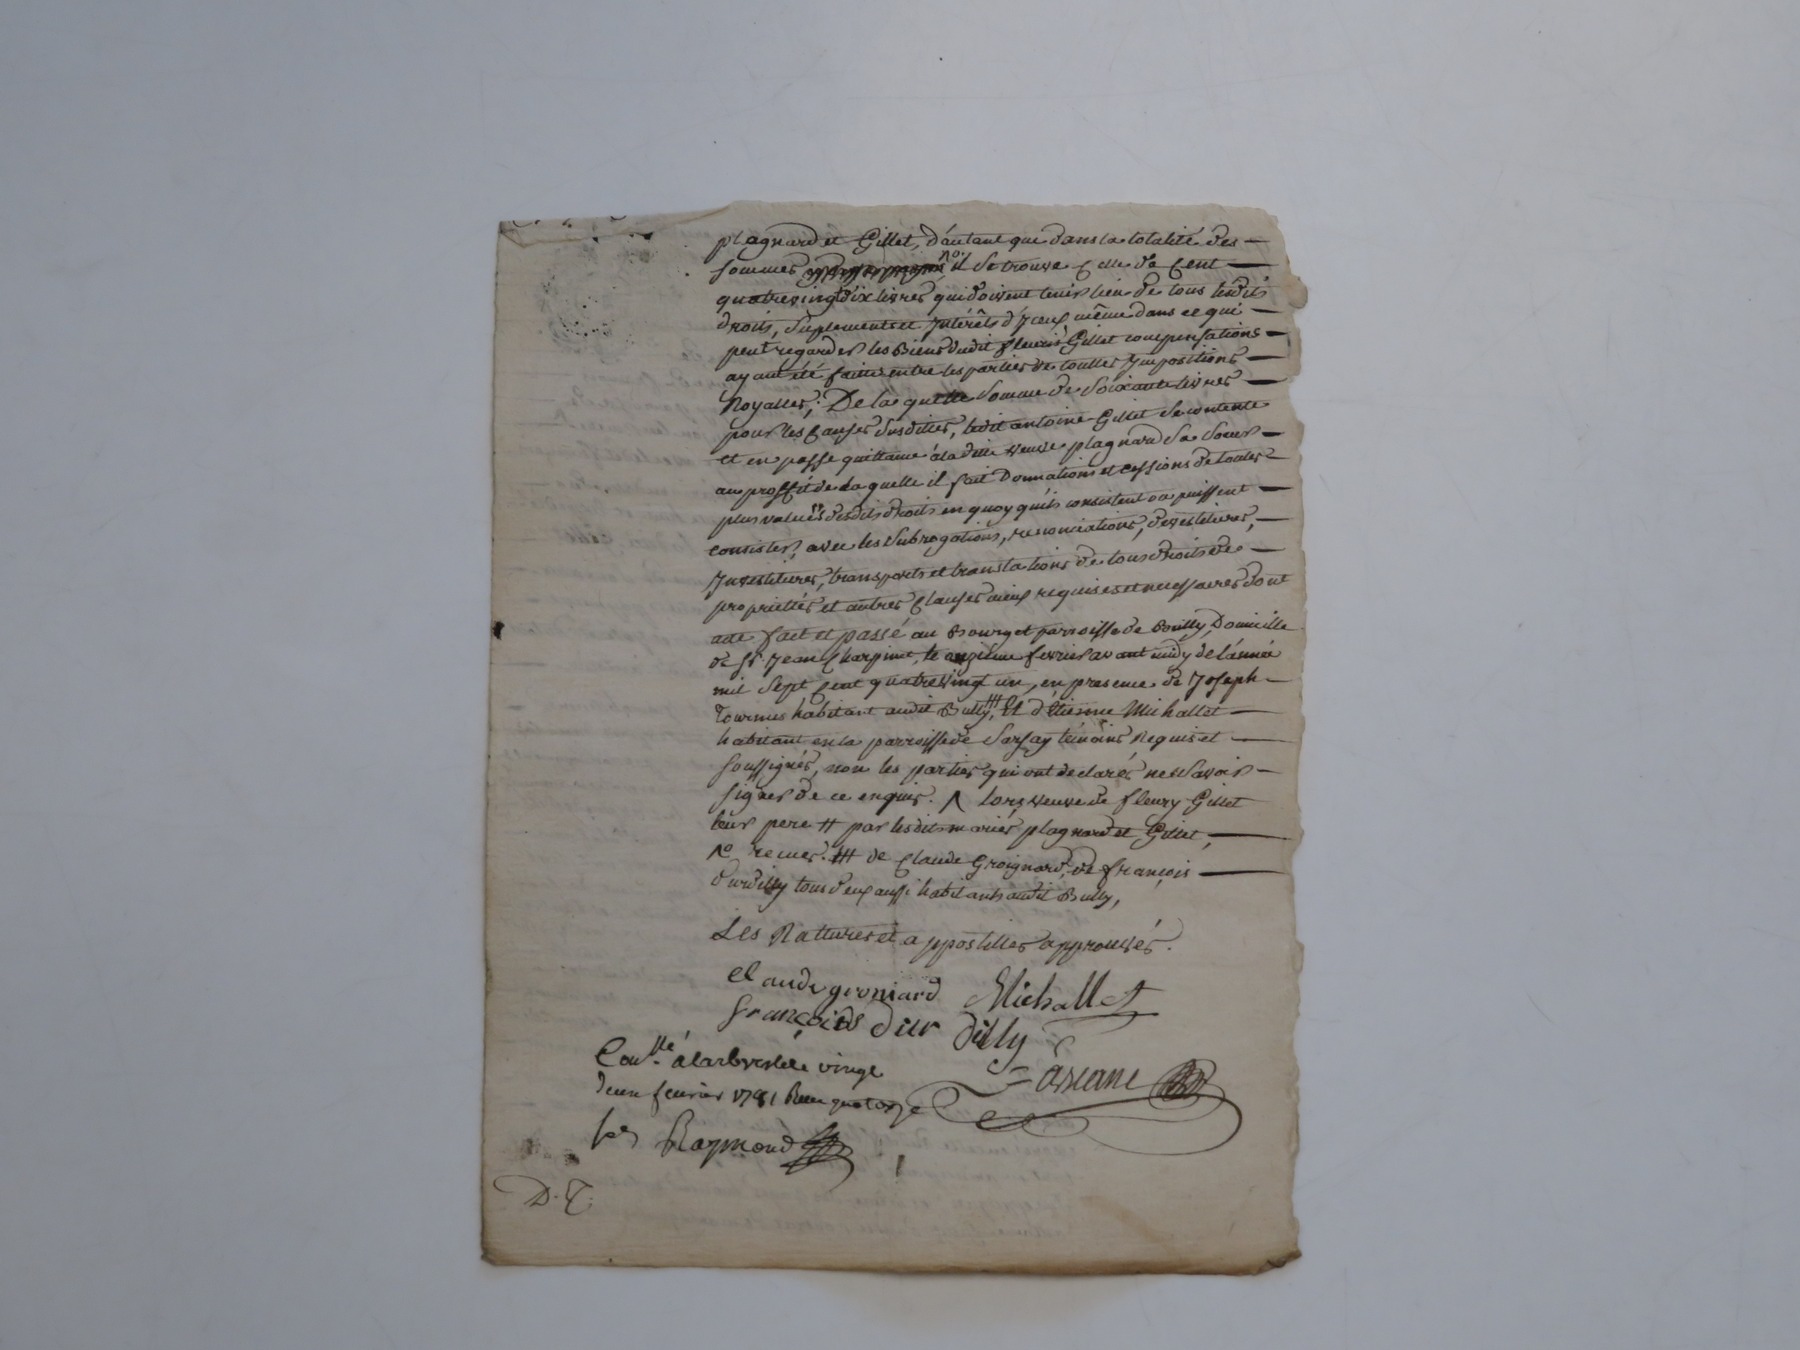 plagnard et Gillet, d'autant que dans la totalité des
sommes no. il se trouve celle de Cent
quatrevingt dix livres qui doivent tenir lieu de tous lesdits
droits, Suplements et Intérêts d'Iceux même dans ce qui
peut regarder les Biens dudit fleuris Gillet compensations
ayant été faitte entre les parties de touttes Impositions
Royalles; De la quelle Somme de Soixante livres
pour les Causes susdittes, ledit antoine Gillet se contente
et en passe quittance à laditte veuve plagnard sa soeur
au proffit de laquelle il fait Donnations et cessions de toutes
plus valües desdits droits en quoy qu'ils consistent ou puissent
consister, avec les Subrogations, renonciations, devestitures,
Investitures, transports et translations de tous droits de
proprietés et autres Clauses àeux requises et necessaires dont
acte fait et passé au Bourg et parroisse de Bully, Domicille
de Sr. Jean Charpinet, le onzieme fevrier avant midy de l'année
mil Sept Cent quatrevingt un, en presence de Joseph
Tournus habitant audit Bully, ₶ Et d'Etienne Michallet
habitant en la parroisse de Sarsay témoins Requis et
soussignés, non les parties qui ont declarés ne sçavoir
signer de ce enquis. ^ lors veuve de fleury Gillet
leur pere # par lesdits mariés plagnard et Gillet,
No recües. ₶ de Claude Groignard, de françois
durdilly tous deux aussi habitants audit Bully,
Les Rattures et appostilles approuvés.
Claude groniard Michallet
françois dur dilly
Conllé à larbresle vingt
deux fevrier 1781 Reçu quatorze
sols Raymond
D. T.